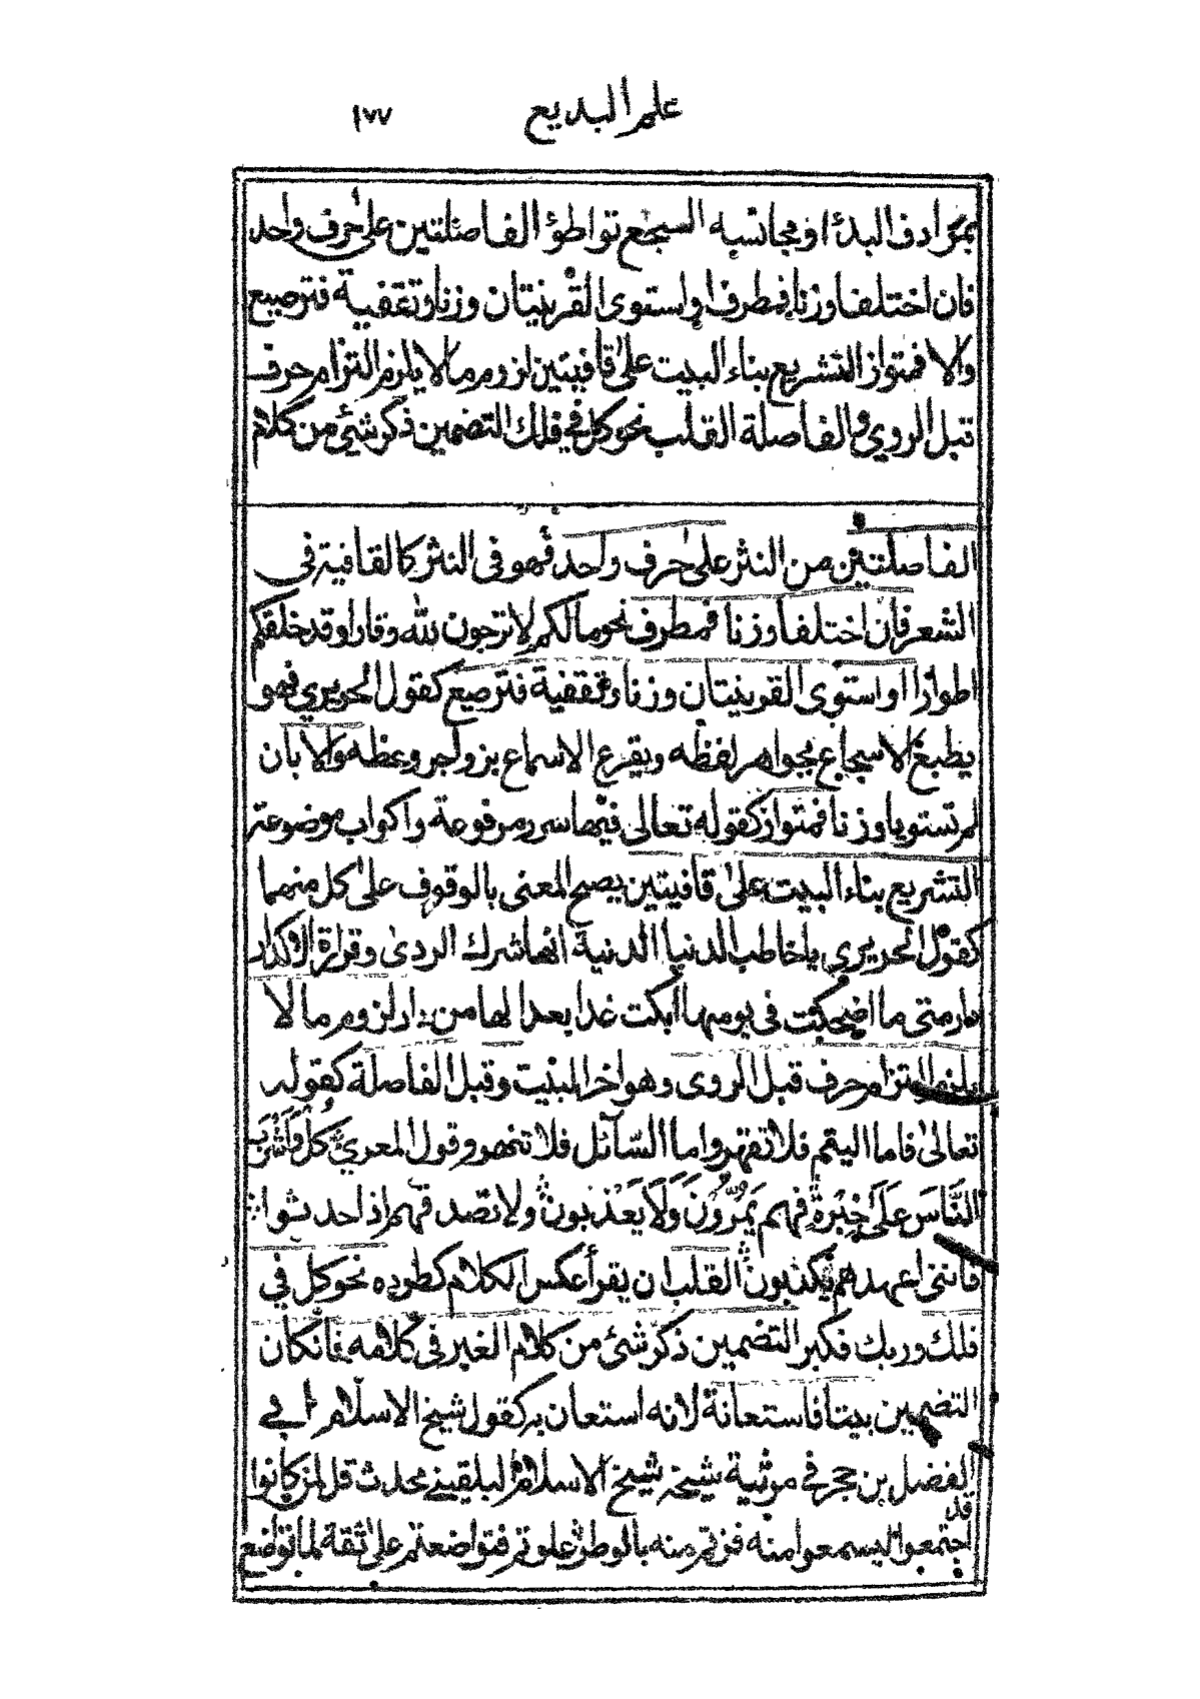 علم البديع ١٧٧
بمرادف البدأ او مجانسه السجع تواطؤ الفاصلتين على حرف واحد
فان اختلفا وزنا فمطرف او استوى القرينتان وزنا وتقفية فترصيع
والا فمتواز التشريع بناء البيت على قافيتين لزوم ما لا يلزم التزام حرف
قبل الروي والفاصلة القلب نحو كل في فلك التضمين ذكر شئ من كلام
الفاصلتين من النثر على حرف واحد فهو فى النثر كالقافية فى
الشعر فان اختلفا وزنا فمطرف نحو مالكم لا ترجون لله وقارا وقد خلقكم
اطوارا او استوى القرينتان وزنا وتقفية فترصيع كقول الحريري فهو
يطبع الاسجاع بجواهر لفظه ويقرع الاسماع بزواجر وعظه والا بان
لم تستويا وزنا فمتواز كقوله تعالى فيها سرر مرفوعة واكواب موضوعة
التشريع بناء البيت على قافيتين يصح المعنى بالوقوف على كل منهما
كقول الحريري يا خاطب الدنيا الدنية انها شرك الردى وقرارة الاكدار
دار متى ما اضحكت فى يومها ابكت غدا بعدا لها من دار لزوم ما لا
يلزم التزام حرف قبل الروى وهو اخر البيت وقبل الفاصلة كقوله
تعالى فاما اليتيم فلا تقهر واما السائل فلا تنهر وقول المعري كل واشرب
الناس على خبرة فهم يمرون ولا يعذبون ولا تصدقهم اذا حدثوا
فاننى اعهدهم يكذبون القلب ان يقرأ عكس الكلام كطرده نحو كل في
فلك وربك فكبر التضمين ذكر شئ من كلام الغير فى كلامه فان كان
التضمين بيتا فاستعانة لانه استعان به كقول شيخ الاسلام ابي
الفضل بن حجر في مرثية شيخه شيخ الاسلام البلقيني محدث قل لمن كانوا قد
اجتمعوا ليسمعوا منه فزتم منه بالوطر علوتم فتواضعتم على ثقة لما تواضع